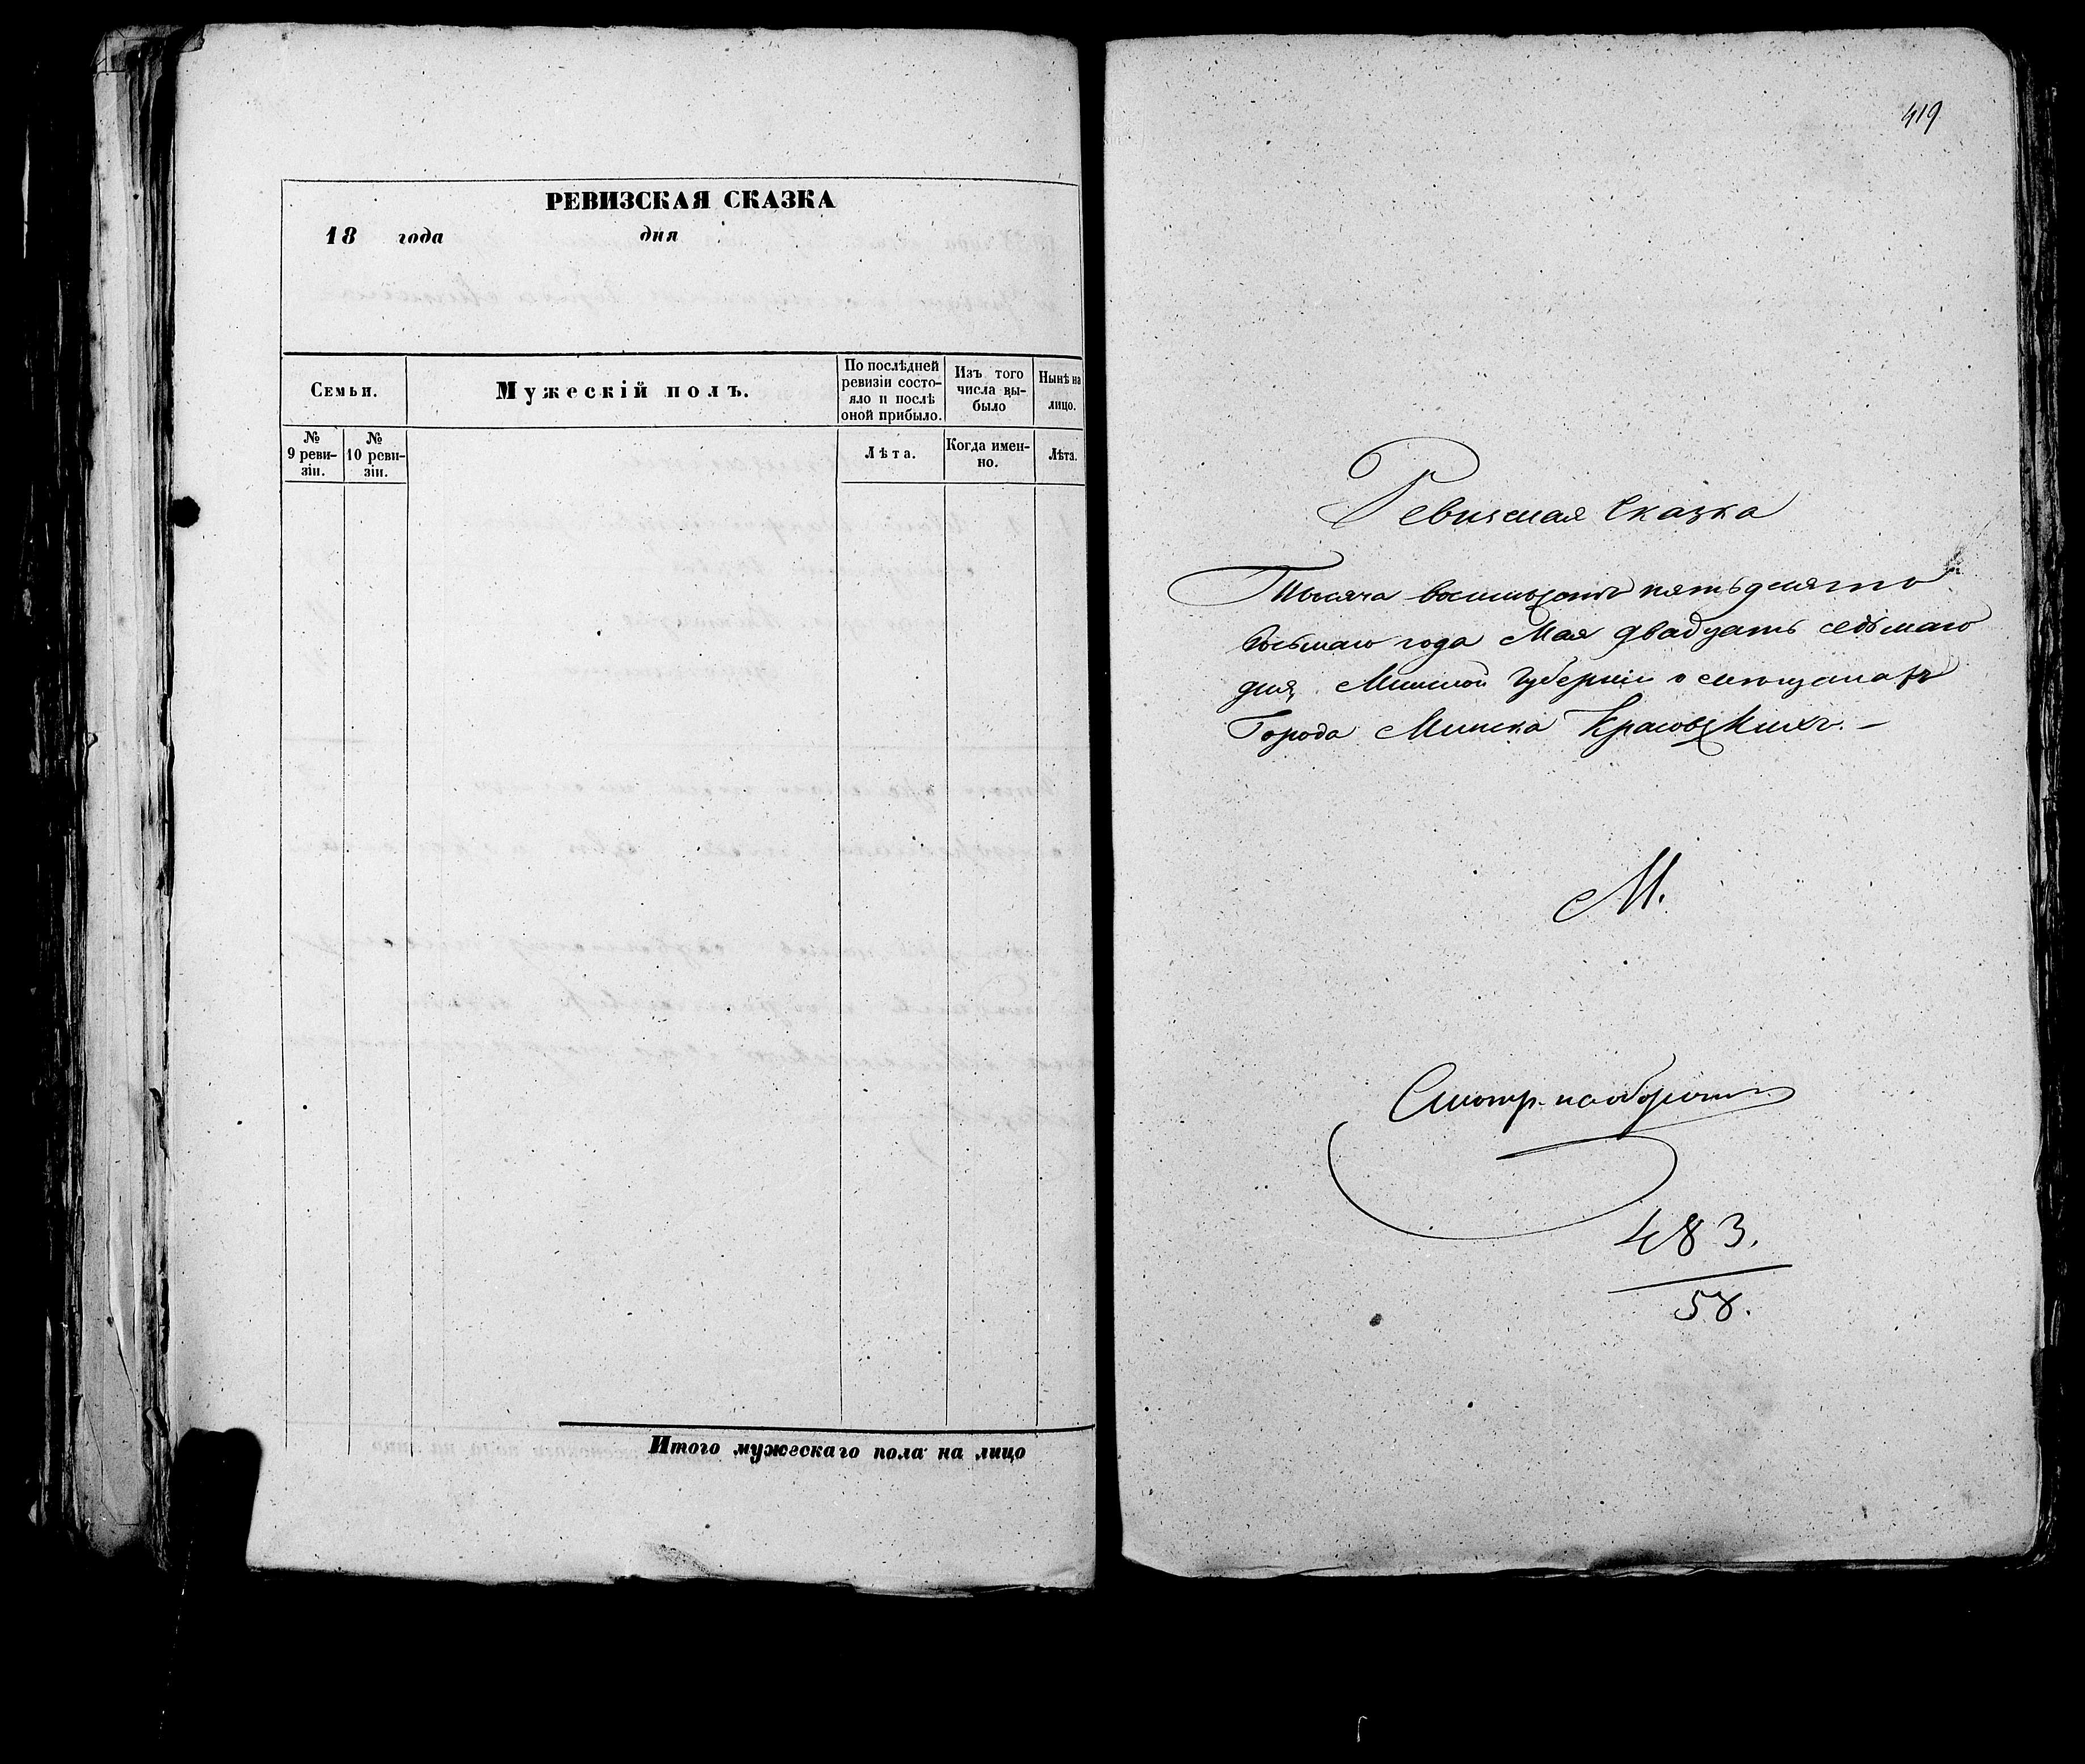 РЕВИЗСКАЯ СКАЗКА
18 года дня
Семьи.
Мужескій полъ.
По послѣдней
ревизіи состо-
яло и послѣ
оной прибыло.
Изъ того
числа вы-
было
Нынѣ на
лицо.
№
9 реви-
зіи.
№
10 реви-
зіи.
Лѣта.
Когда имен-
но.
Лѣта.
Итого мужескаго пола на лицо
419
Ревизская Сказка
Тысяча восемьсотъ пятьдесятъ
восьмаго года Мая двадцать седьмаго
дня, Минской Губерніи о мещанахъ
Города Минска Красовскихъ. –
М.
Смотр. на оборотѣ
483.
58.